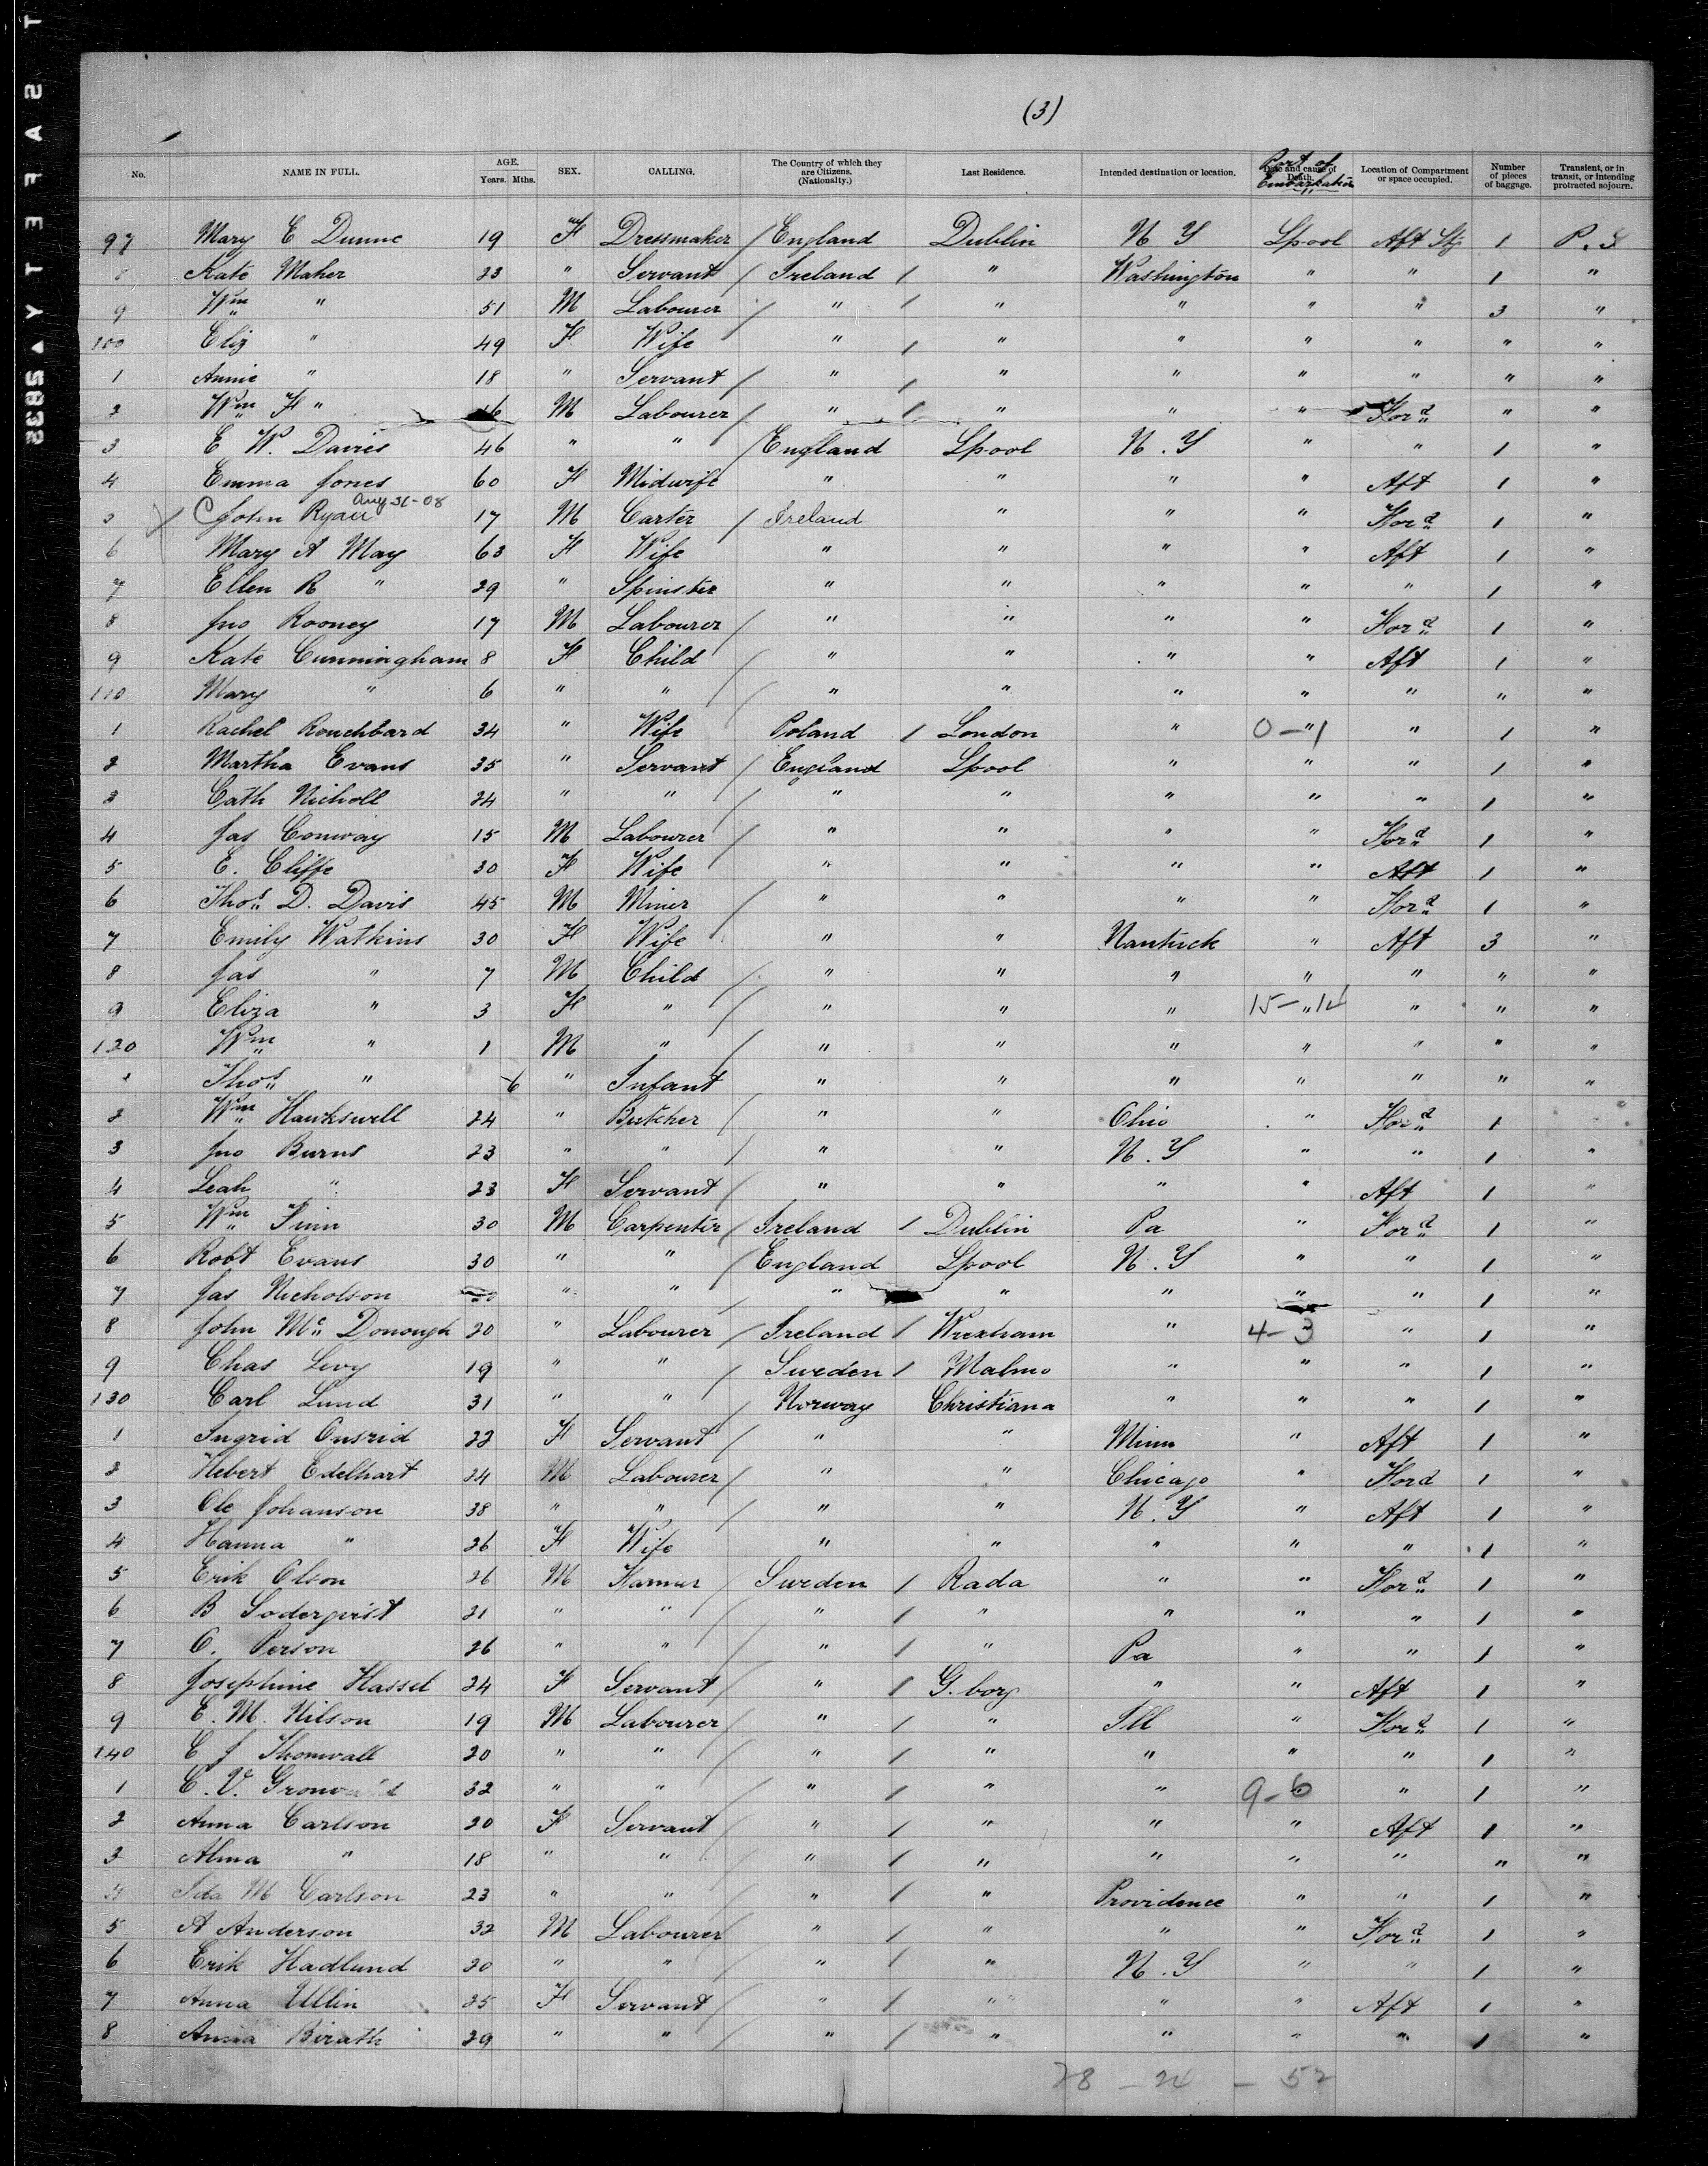 (3)
No. NAME IN FULL. AGE. Years. Mths. SEX. CALLING. The Country of which they are Citizens. (Nationalty.) Last Residence. Intended destination or location. Port of Embarkation Date and cause of Death. Location of Compartment or space occupied. Number of pieces of baggage. Transient, or in transit, or intending protracted sojourn.
97 Mary E Dunne 19 F Dressmaker / England Dublin N Y Lpool Aft Stg 1 P. S
8 Kate Maher 23 " Servant / Ireland / " Washington " " 1 "
9 Wm " 51 M Labourer / " / " " " " 3 "
100 Eliz " 49 F Wife " / " " " " " "
1 Annie " 18 " Servant / " / " " " " " "
2 Wm F " M Labourer / " / " " " Ford " "
3 E W. Davies 46 " " / England Lpool N. Y " " 1 "
4 Emma Jones 60 F Midwife " " " " Aft 1 "
Aug 31-08
5 C John Ryan 17 M Carter / Ireland " " " Ford 1 "
6 Mary A May 63 F Wife " " " " Aft 1 "
7 Ellen R " 29 " Spinster " " " " " 1 "
8 Jno Rooney 17 M Labourer / " " " " Ford 1 "
9 Kate Cunningham 8 F Child / " " " " Aft 1 "
110 Mary " 6 " " / " " " " " " "
1 Rachel Rouchbard 34 " Wife Poland / London " 0-1 " " 1 "
2 Martha Evans 35 " Servant / England Lpool " " " 1 "
3 Cath Nicholl 24 " " / " " " " " 1 "
4 Jas Conway 15 M Labourer / " " " " Ford 1 "
5 E. Cliffe 30 F Wife " " " " Aft 1 "
6 Thos D. Davis 45 M Miner / " " " " Ford 1 "
7 Emily Watkins 30 F Wife " " Nantuck " Aft 3 "
8 Jas " 7 M Child / " " " " " " "
9 Eliza " 3 F " / " " " 15-12 " " " "
120 Wm " 1 M " / " " " " " " "
1 Thos " 6 " Infant " " " " " " "
2 Wm Hawkswell 24 " Butcher / " " Ohio " Ford 1
3 Jno Burns 23 " " / " " N. Y " " 1 "
4 Leah " 23 F Servant / " " " " Aft 1 "
5 Wm Finn 30 M Carpenter / Ireland / Dublin Pa " Ford 1 "
6 Robt Evans 30 " " / England Lpool N. Y " " 1 "
7 Jas Nicholson " " / " " " " " 1 "
8 John Mc Donough 20 " Labourer / Ireland / Wrexham " 4-3 " 1 "
9 Chas Levy 19 " " / Sweden / Malmo " " " 1 "
130 Carl Lund 31 " " / Norway Christiana " " " 1 "
1 Ingrid Onsrid 22 F Servant / " " Minn " Aft 1 "
2 Hebert Edelhart 24 M Labourer / " " Chicago " Ford 1 "
3 Ole Johanson 38 " " / " " N. Y " Aft 1 "
4 Hanna " 26 F Wife " " " " " 1 "
5 Erik Olson 26 M Farmer Sweden / Rada " " Ford 1 "
6 B Soderqvist 21 " " / " / " " " " 1 "
7 C. Person 26 " " / " / " Pa " " 1 "
8 Josephine Hassel 24 F Servant / " / G. borg " " Aft 1 "
9 E. M. Nilson 19 M Labourer / " / " Ill " Ford 1 "
140 C J Thornvall 20 " " / " / " " " " 1 "
1 C. V. 32 " " / " / " " 9-6 " 1 "
2 Anna Carlson 20 F Servant / " / " " " Aft 1 "
3 Alma " 18 " " / " / " " " " " "
4 Ida M Carlson 23 " " / " / " Providence " " 1 "
5 A Anderson 32 M Labourer / " / " " " Ford 1 "
6 Erik Hadlund 30 " " / " / " N. Y " " 1 "
7 Anna Ullin 35 F Servant / " / " " " Aft 1 "
8 Anna Birath 29 " " / " / " " " " 1 "
28 - 24 - 52
SAFETY 5832